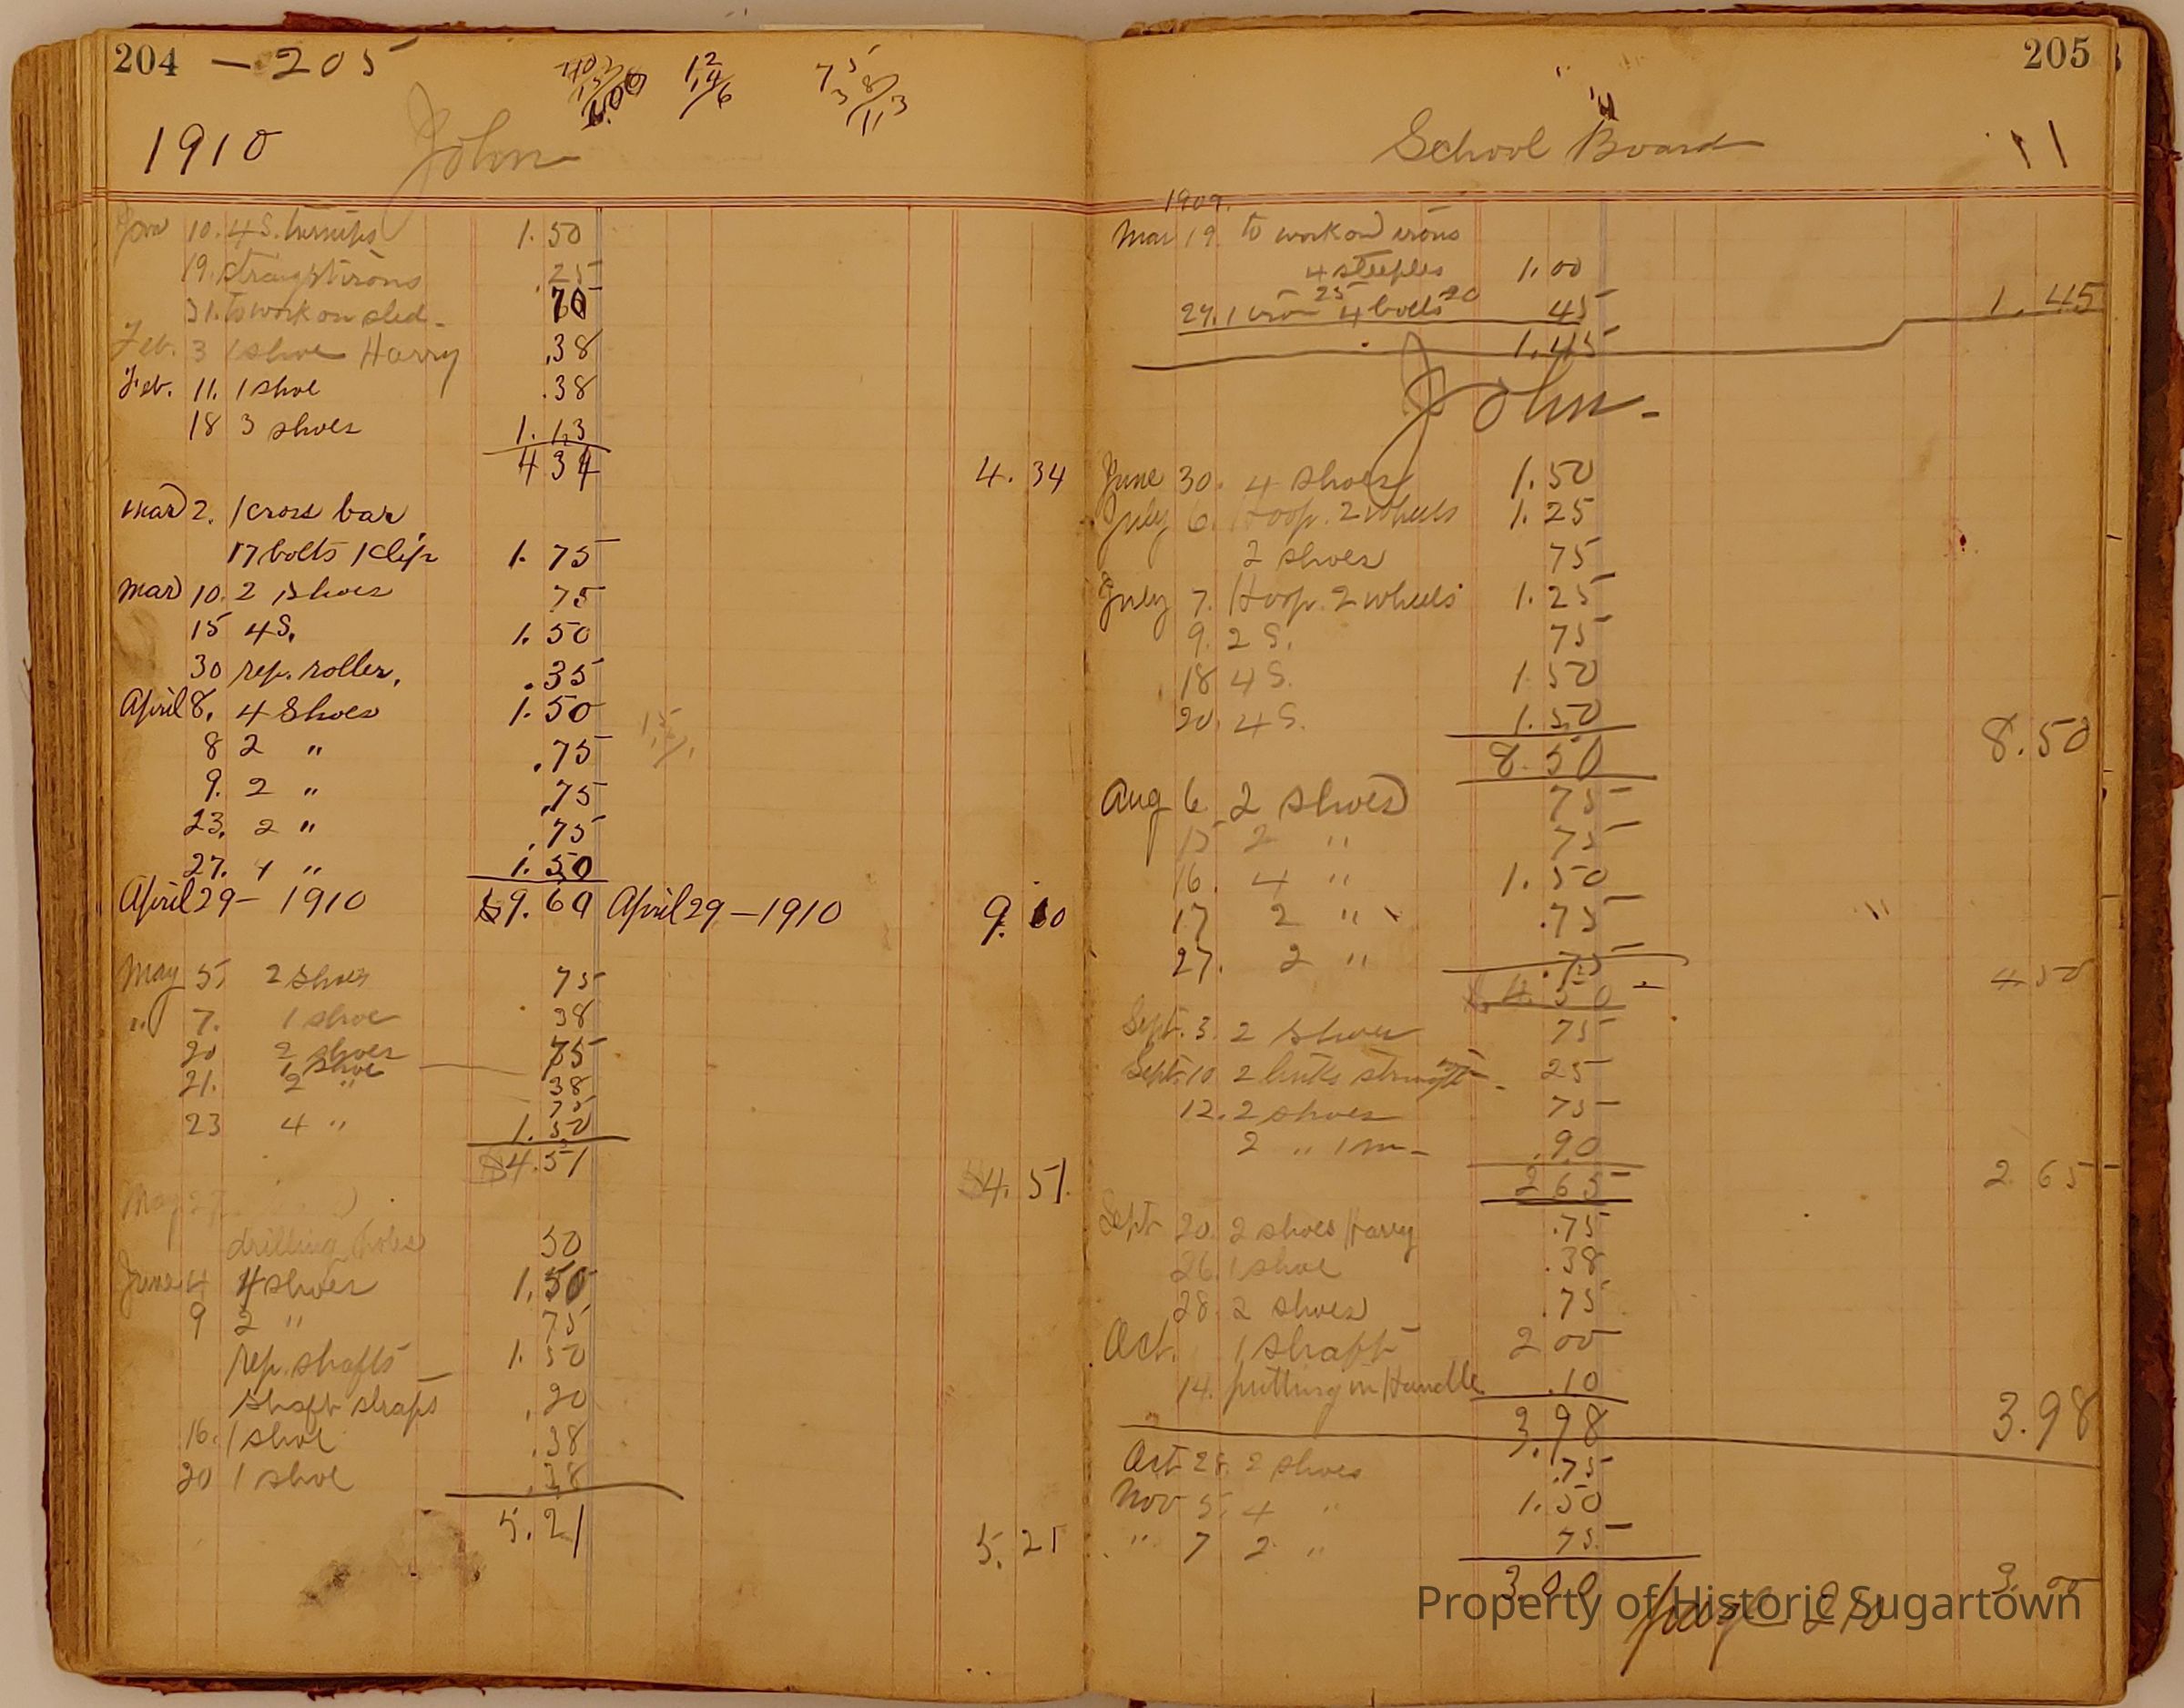 204 — 205
12
14/6
7 5
3 8/11 3
1910 John
Jan 10. 4 S. 1.50
19. Straight irons .25
31. to work on sled - 70
Feb. 3 1 shoe Harry .38
Feb. 11. 1 shoe .38
18 3 shoes 1.13
4 34 4.34
Mar 2. 1 cross bar
17 bolts 1 clip 1.75
Mar 10. 2 shoes 75
15 4 S. 1.50
30 rep. roller. .35
April 8. 4 Shoes 1.50
8 2 " .75
9. 2 " .75
23. 2 " .75
27. 4 " 1.50
April 29 - 1910 $9.60 April 29 - 1910 9.60
May 5 2 Shoes 75
" 7. 1 shoe 38
20 2 shoes 75
1 Shoe 38
21. 2 " 75
23 4 " 1.50
$4.51 $4.51
May 27
drilling holes 50
June 4 4 shoes 1.50
9 2 " 75
rep. shafts 1.50
Shaft straps .20
16. 1 shoe .38
20 1 shoe .38
5.21 5.21
205
School Board 11
1909.
Mar 19. to work on irons
4 steeples 1.00
25 20
29. 1 iron 4 bolts 45 1.45
1.45
John -
June 30. 4 shoes 1.50
July 6. Hoop. 2 wheels 1.25
2 shoes 75
July 7. Hoop. 2 wheels 1.25
9. 2 S. 75
18 4 S. 1.50
20. 4 S. 1.50
8.50 8.50
Aug 6 2 shoes 75
15 2 " 75
16. 4 " 1.50
17 2 " .75
27. 2 " .75
$4.50 4.50
Sept. 3. 2 shoes 75
Sept. 10 2 links 25
12. 2 shoes 75
2 " 1 m - .90
2 65 2 65
Sept 20. 2 shoes Harry .75
26. 1 shoe .38
28. 2 shoes .75
Oct. 1 shaft 2 00
14. putting in Handle. .10
3.98 3.98
Oct 28. 2 shoes .75
Nov 5. 4 " 1.50
" 7 2 " 75
3.00 3.00
page 210
Property of Historic Sugartown